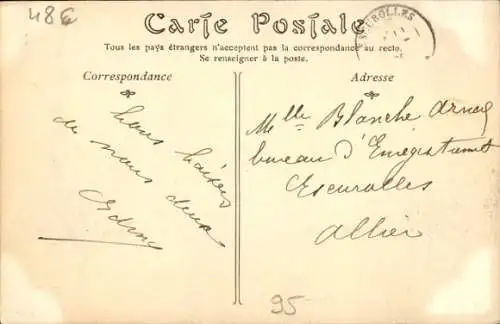 48€
Carte Postale
Tous les pays étrangers n'acceptent pas la correspondance au recto.
Se renseigner à la poste.
Correspondance
bons baisers
de nous deux
Adresse
Melle Blanche
bureau d'Enregistrement
Escurolles
Allier
95